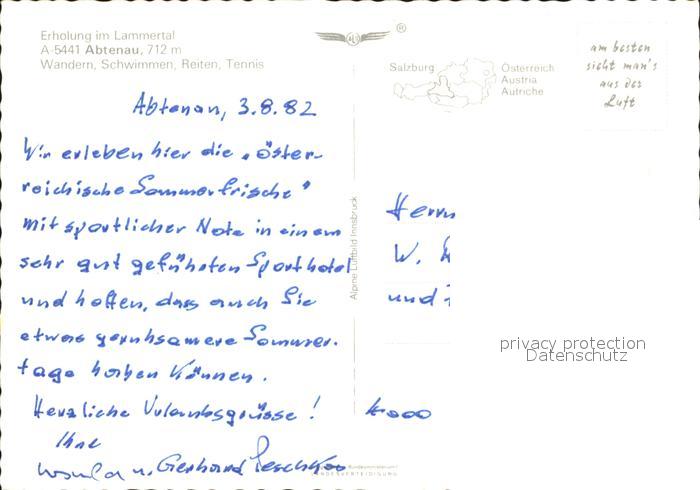 Erholung im Lammertal
A-5441 Abtenau, 712 m
Wandern, Schwimmen, Reiten, Tennis
ALI
®
Salzburg
Österreich
Austria
Autriche
am besten
sieht man's
aus der
Luft
Abtenau, 3.8.82
Wir erleben hier die „öster-
reichische Sommerfrische"
mit sportlicher Note in einem
sehr gut geführten Sporthotel
und hoffen, dass auch Sie
etwas geruhsamere Sommer-
tage haben können.
Herzliche Urlaubsgrüsse!
Ihre
Ursula u. Gerhard
Alpine Luftbild Innsbruck
Herrn
W.
und
4000
privacy protection
Datenschutz